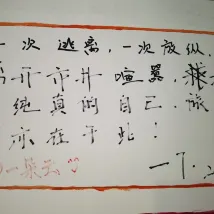 一次逃离，一次放纵，
开市井喧嚣，
纯真的自己，旅
亦在于此！
一朵云